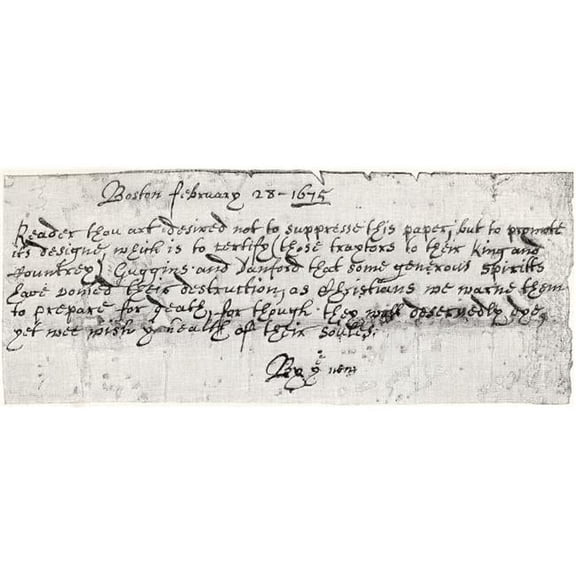 Boston february 28 - 1675
Reader thou art desired not to suppresse this paper, but to promote
its designe, which is to certify (those traytors to their King and
Countrey) Guggins and Danford that some generous spiritts
have vowed their destruction, as Christians we warne them
to prepare for death, for though they will deservedly dye,
yet wee wish ye health of their soules.
By ye new